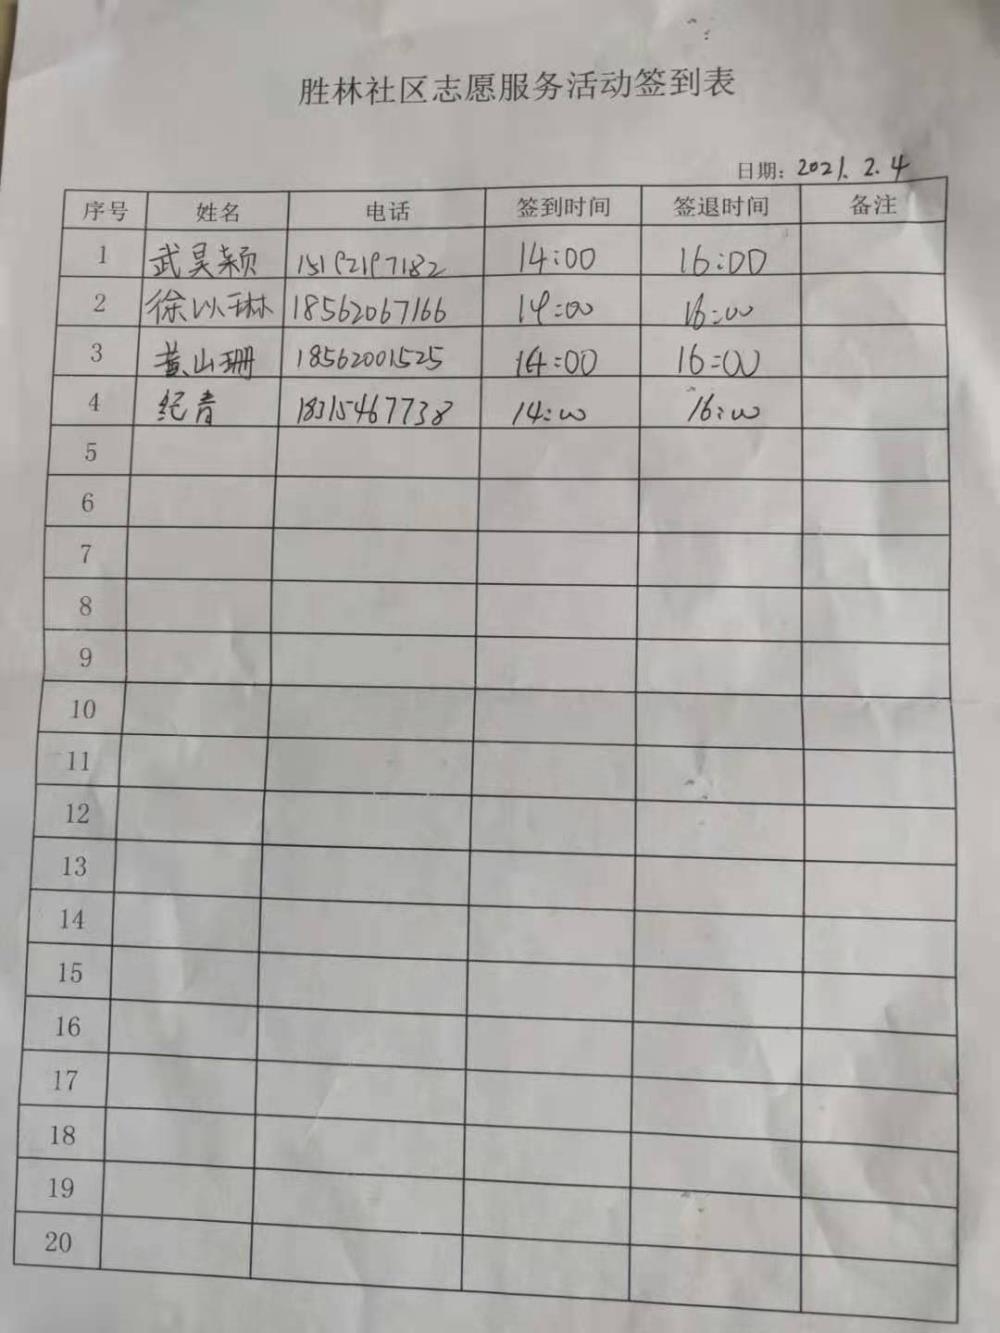 胜林社区志愿服务活动签到表
日期: 2021.2.4
序号 姓名 电话 签到时间 签退时间 备注
1 武昊颖 15192197182 14:00 16:00
2 徐以琳 18562067166 14:00 16:00
3 黄山珊 18562001525 14:00 16:00
4 纪青 18315467738 14:00 16:00
5
6
7
8
9
10
11
12
13
14
15
16
17
18
19
20